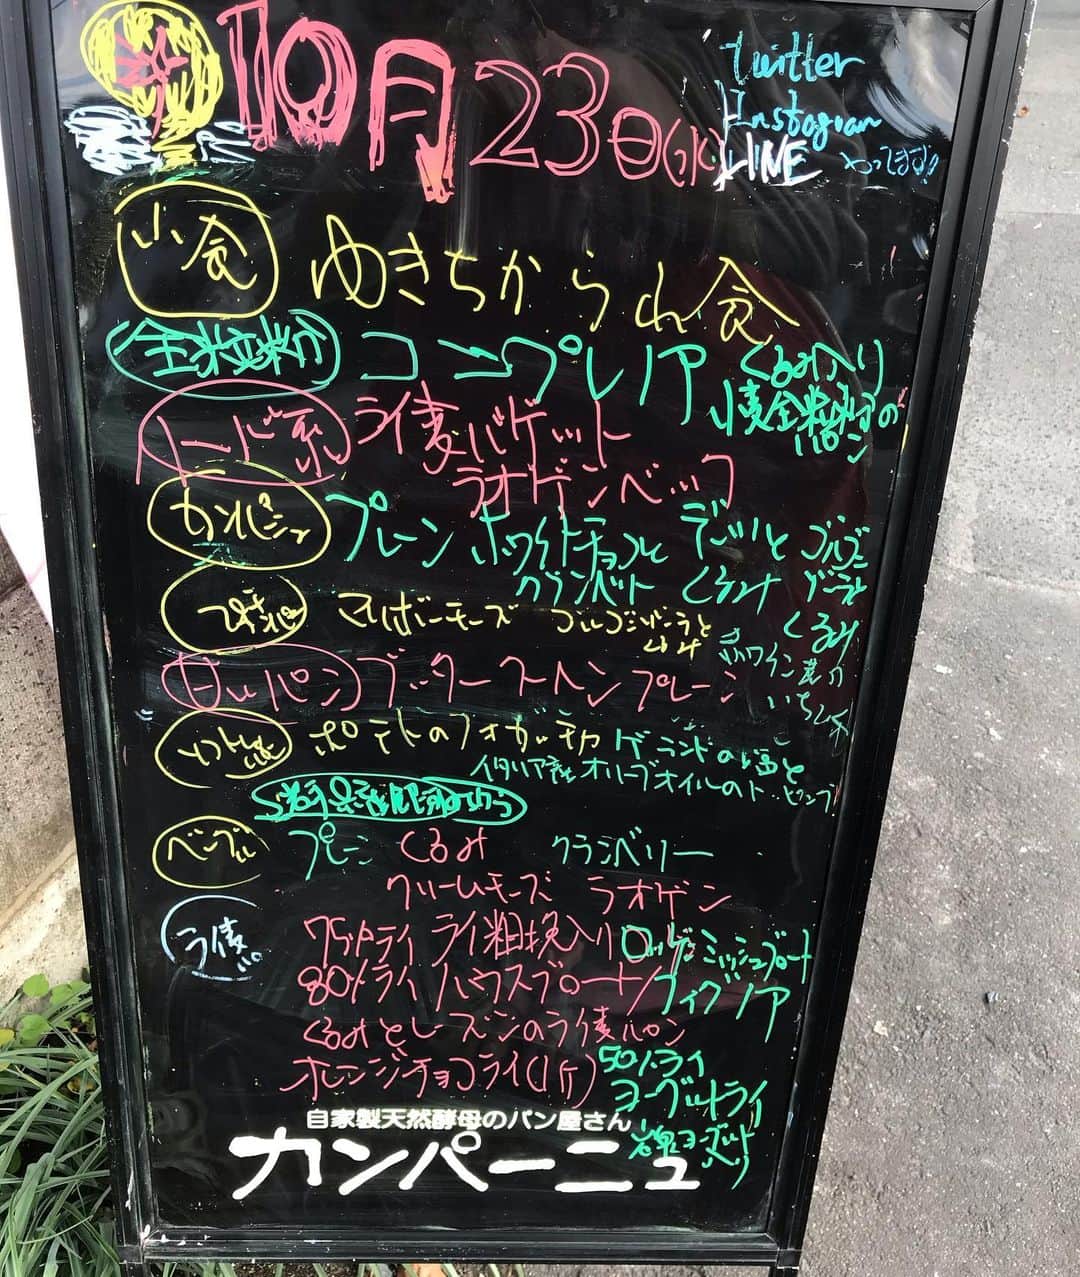 10月23日(水)
Twitter
Instagram
LINE やってます!!
小食 ゆきちから小食
全粒粉 コンプレノア くるみ入り
小麦全粒粉の
パン
ハード系 ライ麦バゲット
ラオゲンベック
カンパーニュ プレーン ホワイトチョコと クランベリー くるみ ゴルゴンゾーラと くるみ
マリボーチーズ ゴルゴンゾーラと
くるみ
赤ワイン
いちじく
甘いパン ブッター ストーン プレーン
ソフト ポテトのフォカッチャ ゲランドの塩と
イタリア産オリーブオイルのトッピング
ベーグル プレーン くるみ クランベリー
クリームチーズ ラオゲン
ライ麦パン 75%ライ ライ粗挽入り ロッゲンミッシュブロート
80%ライ ハウスブロート フィグノア
くるみとレーズンのライ麦パン
オレンジチョコライ(1ケ) 50%ライ
ヨーグルトライ
自家製天然酵母のパン屋さん
ヨーグルト
入り
カンパーニュ